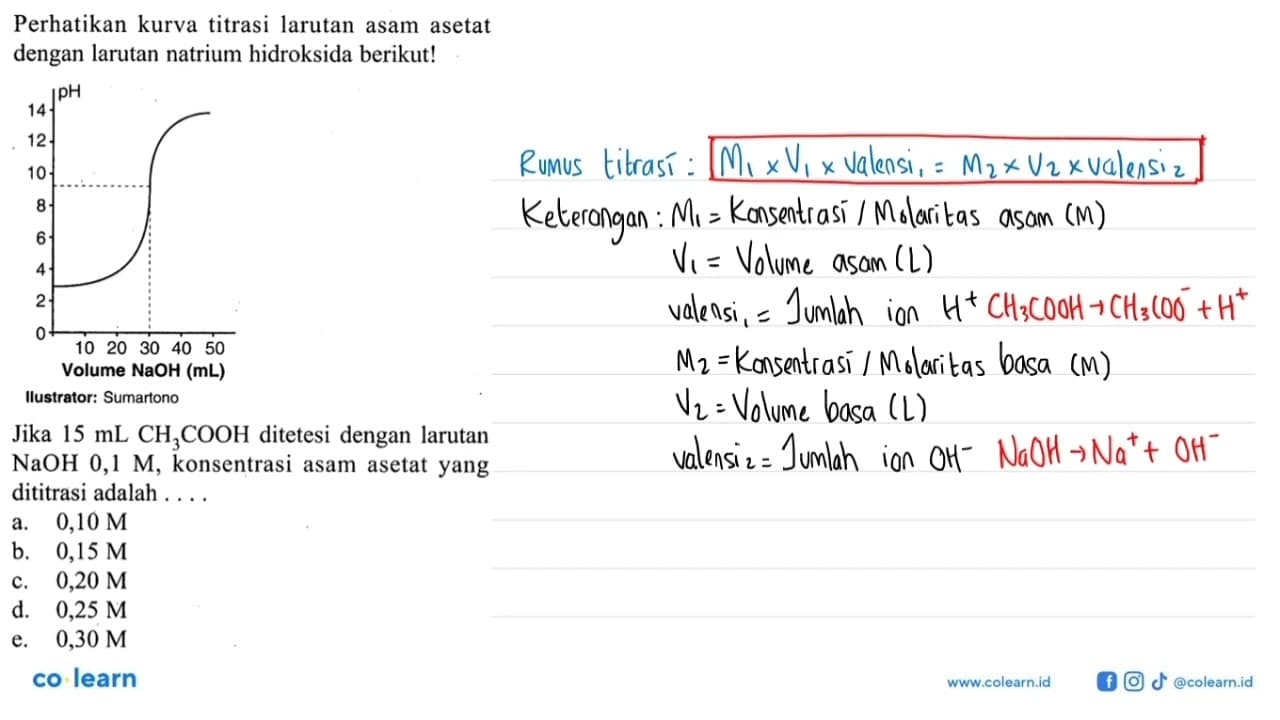 Perhatikan kurva titrasi larutan asam asetat
dengan larutan natrium hidroksida berikut!
pH
14
12
10
8
6
4
2
0
10 20 30 40 50
Volume NaOH (mL)
Ilustrator: Sumartono
Jika 15 mL CH₃COOH ditetesi dengan larutan
NaOH 0,1 M, konsentrasi asam asetat yang
dititrasi adalah . . . .
a. 0,10 M
b. 0,15 M
c. 0,20 M
d. 0,25 M
e. 0,30 M
Rumus titrasi : M₁ x V₁ x valensi₁ = M₂ x V₂ x valensi₂
Keterangan : M₁ = Konsentrasi / Molaritas asam (M)
V₁ = Volume asam (L)
valensi₁ = Jumlah ion H⁺ CH₃COOH → CH₃COO⁻ + H⁺
M₂ = Konsentrasi / Molaritas basa (M)
V₂ = Volume basa (L)
valensi₂ = Jumlah ion OH⁻ NaOH → Na⁺ + OH⁻
co learn
www.colearn.id
@colearn.id